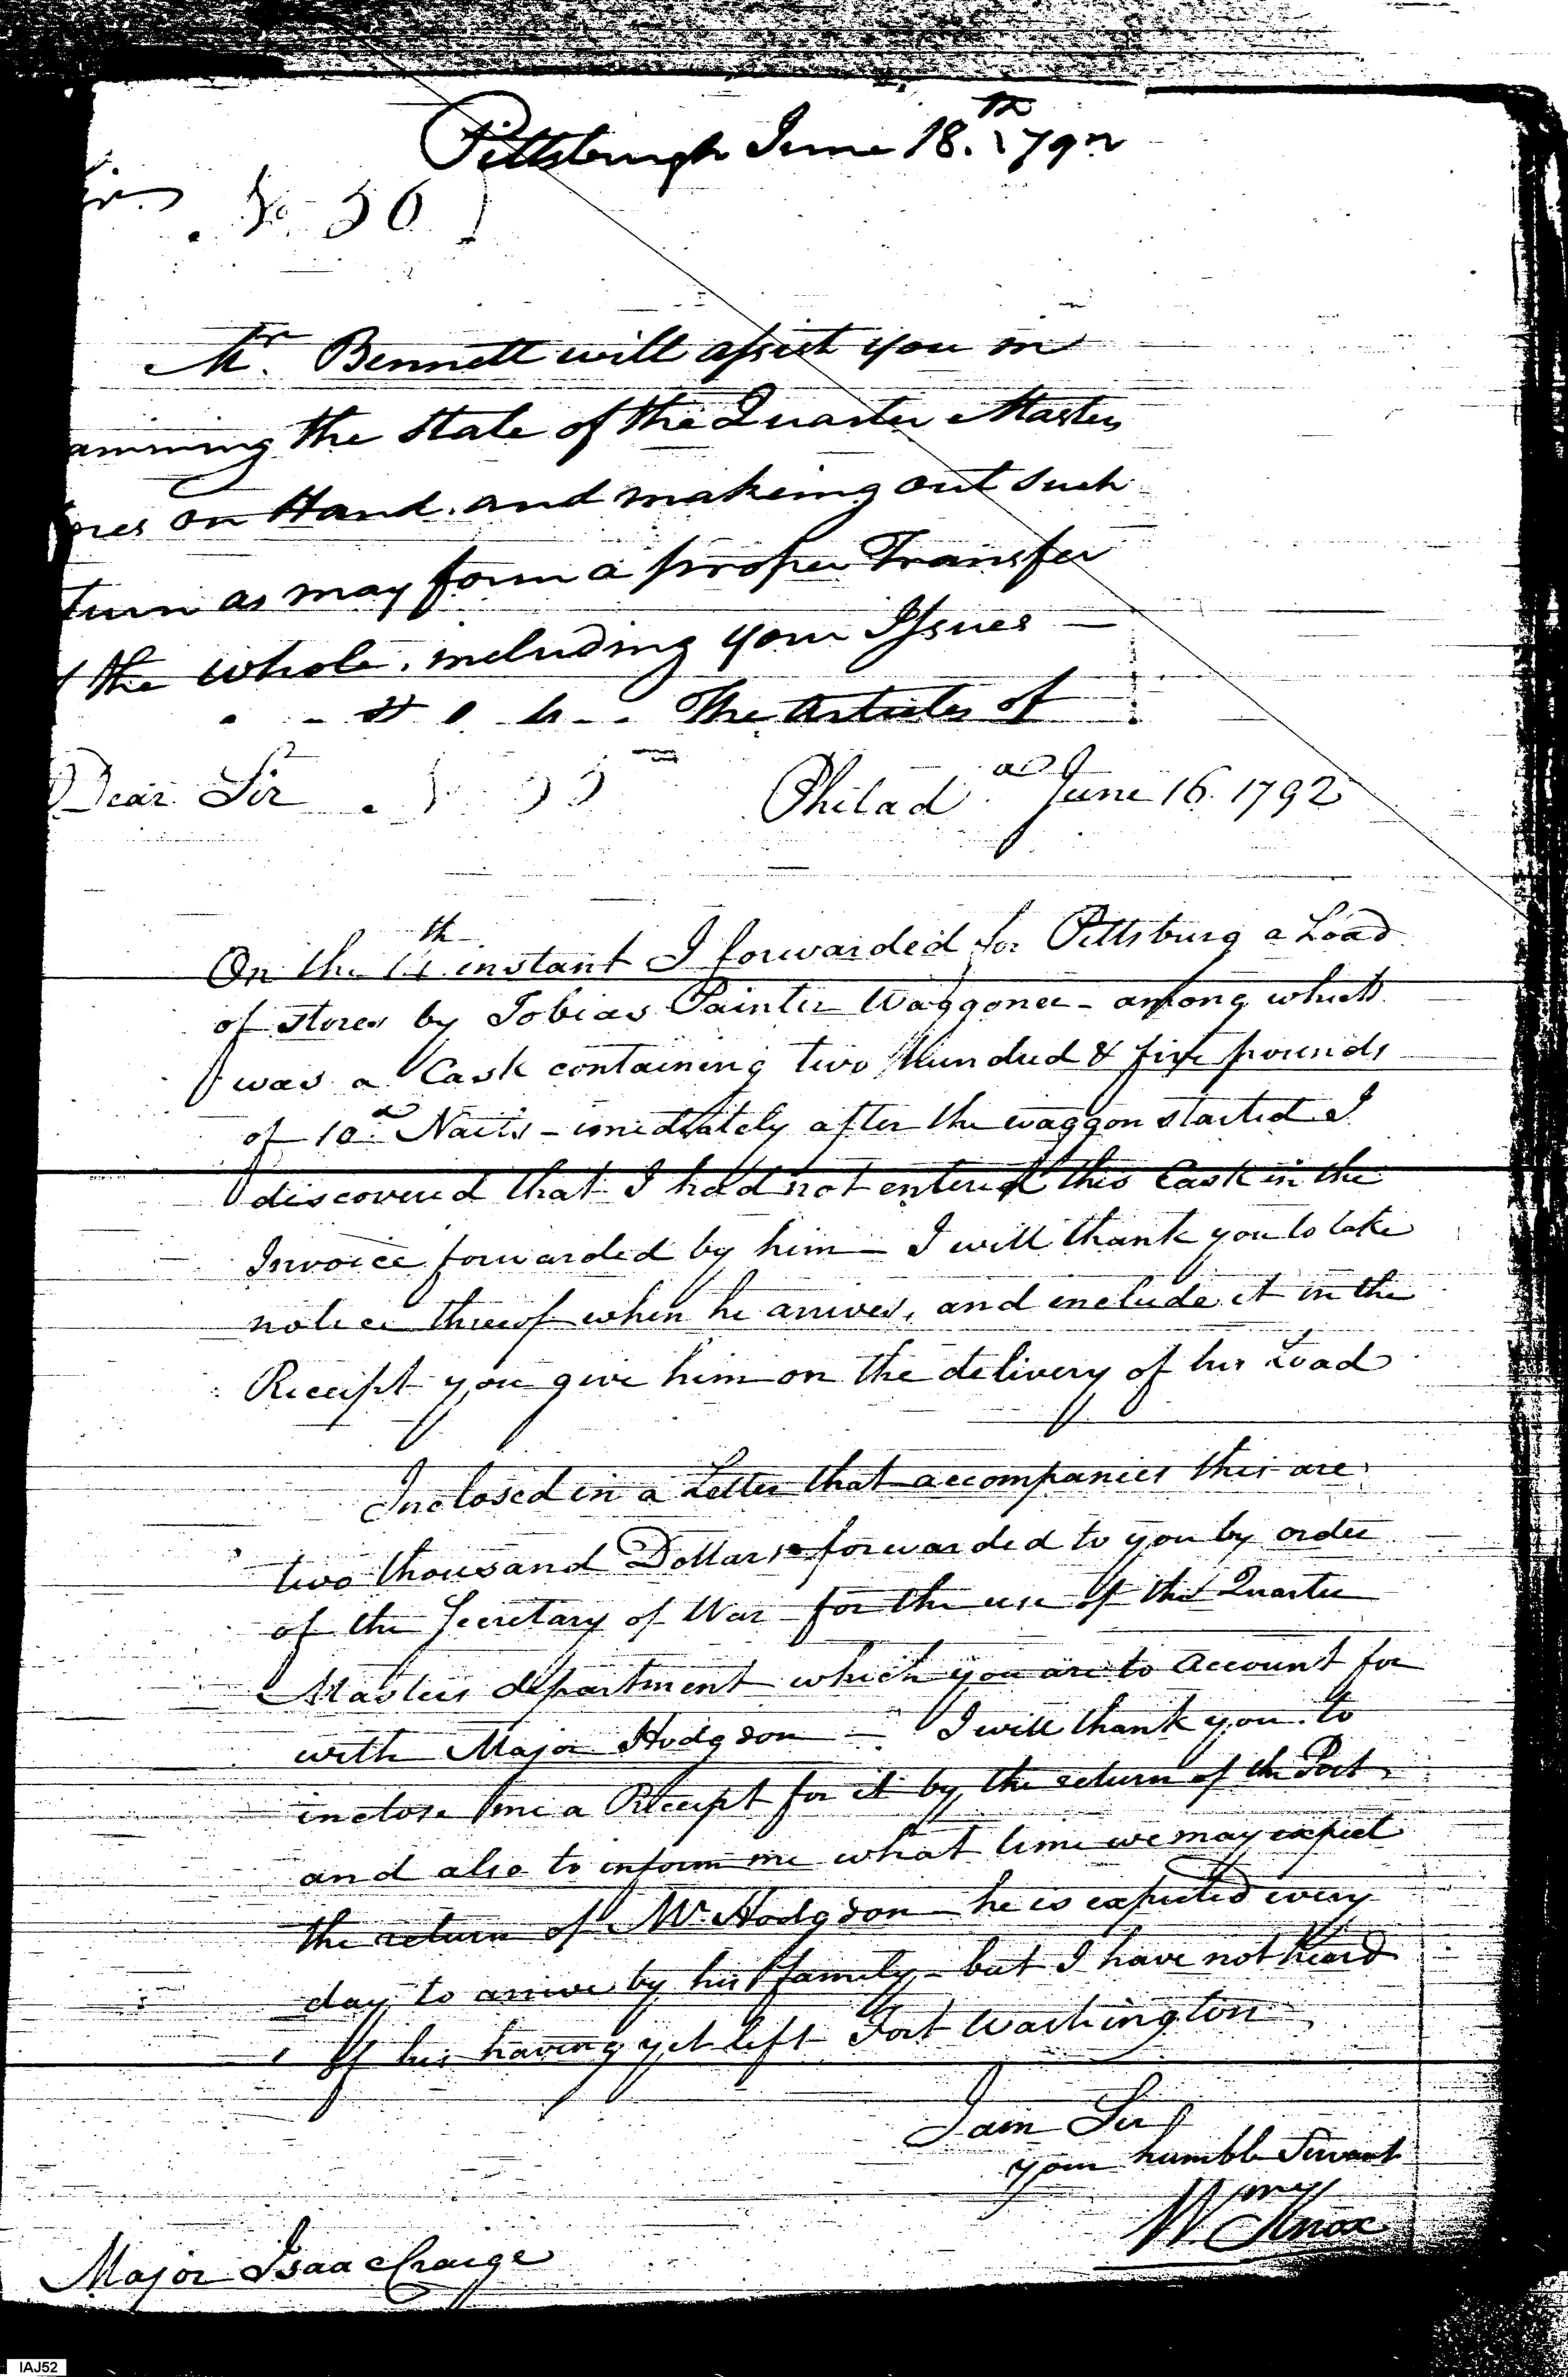 Pittsburgh June 18.th 1792
No. 56
Mr. Bennett will assist you in
amining the State of the Quarter Masters
ores on Hand. and makeing out such
turn as may form a proper Transfer
the whole, including your Issues —
The Articles of
Dear Sir
Philada. June 16. 1792
On the instant I forwarded for Pittsburg a Load
of stores by Tobias Painter Waggoner - among which
was a Cask containing two Hundred & five pounds
of 10d. Nails - imediately after the waggon started I
discovered that I had not entered this Cask in the
Invoice forwarded by him — I will thank you to take
notice thereof when he arrives, and include it in the
Receipt you give him on the delivery of his Load
Inclosed in a Letter that accompanies this are
two thousand Dollars forwarded to you by order
of the Secretary of War - for the use of the Quarter
Masters department which you are to account for
with Major Hodgdon — I will thank you to
inclose me a Receipt for it by the return of the Post,
and also to inform me what time we may expect
the return of Mr. Hodgdon — he is expected every
day to arrive by his family - but I have not heard
of his having yet left Fort Washington
I am Sir
your humble Servant
Wm Knox
Major Isaac Craige
IAJ52